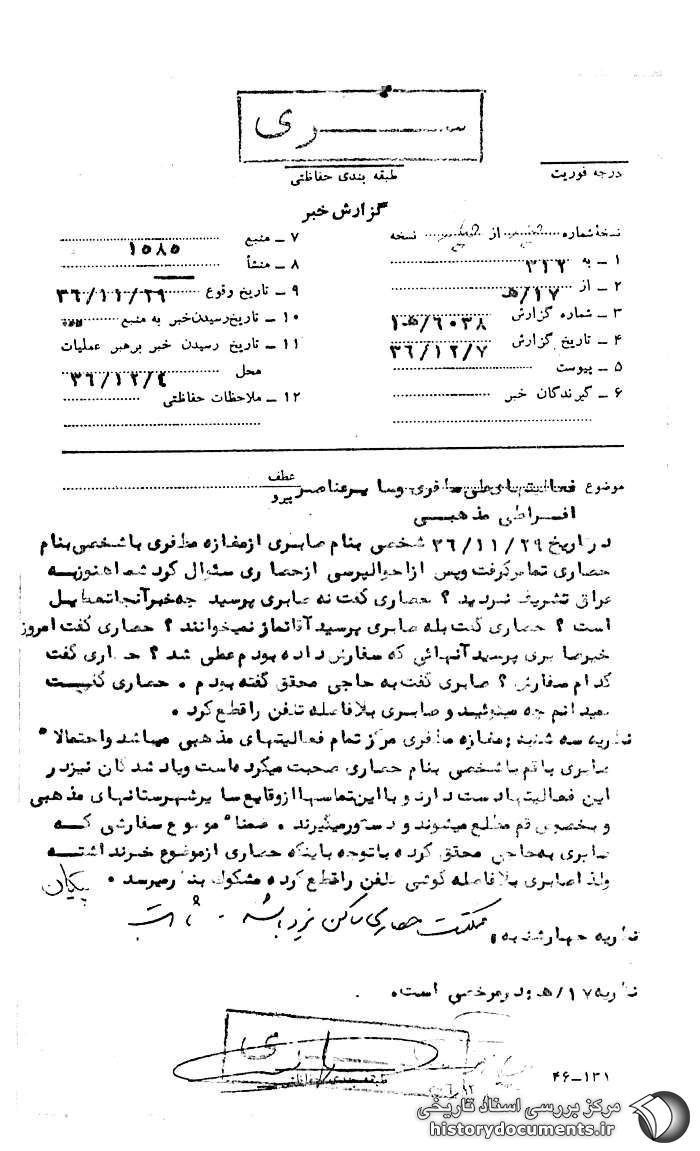 سری
طبقه بندی حفاظتی
درجه فوریت
گزارش خبر
نسخهٔ شماره از نسخه
۱ ـ به ۳۱۲
۲ ـ از ۱۷/هـ
۳ ـ شماره گزارش ۱هـ/۶۰۳۸
۴ ـ تاریخ گزارش ۳۶/۱۲/۷
۵ ـ پیوست
۶ ـ گیرندگان خبر
۷ ـ منبع ۱۵۸۵
۸ ـ منشأ
۹ ـ تاریخ وقوع ۳۶/۱۱/۲۹
۱۰ ـ تاریخ رسیدن خبر به منبع
۱۱ ـ تاریخ رسیدن خبر برهبر عملیات
محل ۳۶/۱۲/۴
۱۲ ـ ملاحظات حفاظتی
موضوع فعالیتهای علی مظفری و سایر عناصر عطف پیرو
افراطی مذهبی
در تاریخ ۳۶/۱۱/۲۹ شخصی بنام صابری از مغازه مظفری با شخصی بنام
حصاری تماس گرفت و پس از احوالپرسی از حصاری سئوال کرد شما هنوز به
عراق تشریف نبردید ؟ حصاری گفت نه صابری پرسید چه خبر آنجا تعطیل
است ؟ حصاری گفت بله صابری پرسید آقا نماز نمیخوانند ؟ حصاری گفت امروز
خیر صابری پرسید آنهائی که سفارش داده بودم عطی شد ؟ حصاری گفت
کدام سفارش ؟ صابری گفت به حاجی محقق گفته بودم . حصاری گفت
نمیدانم چه میگوئید و صابری بلافاصله تلفن را قطع کرد .
نظریه سه شنبه : مغازه مظفری مرکز تمام فعالیتهای مذهبی میباشد و احتمالا"
صابری با قم با شخصی بنام حصاری صحبت میکرده است و یاد شدگان نیز در
این فعالیتها دست دارند و با این تماسها از وقایع سایر شهرستانهای مذهبی
و بخصوص قم مطلع میشوند و دستور میگیرند . ضمنا" موضوع سفارشی که
صابری به حاجی محقق کرده با توجه باینکه حصاری از موضوع خبر نداشته
ولذا صابری بلافاصله گوشی تلفن را قطع کرده مشکوک بنظر میرسد . پیکان
نظریه چهارشنبه : ممکنست حصاری ساکن یزد باشد .
نظریه ۱۷/هـ ودر مرخصی است .
طبقه بندی حفاظتی
۴۶ــ۱۳۱
مرکز بررسی اسناد تاریخی
historydocuments.ir